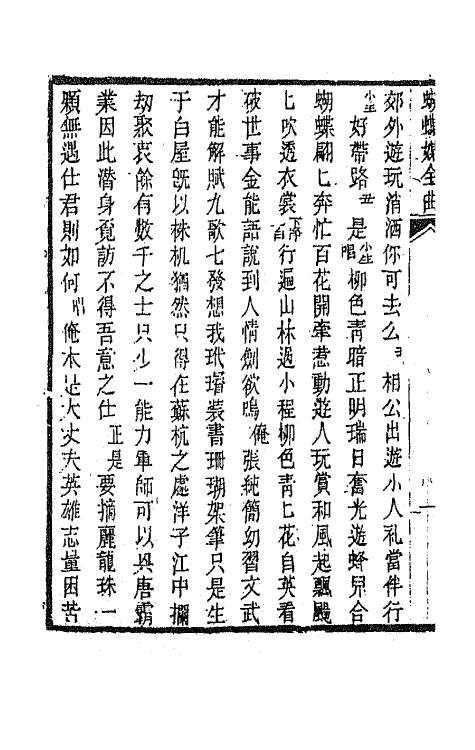 蝴蝶媒全曲
郊外遊玩消洒你可去么丑相公出遊小人礼當伴行
小生好帶路丑是小生唱柳色靑暗正明瑞日奮光遊蜂兒合
蝴蝶翩匕奔忙百花開牽惹動遊人玩賞和風起飄颺
匕吹透衣裳下亭白行遍山林過小程柳色靑匕花自英看
破世事金能語說到人情劍欲鳴俺張純簡幼習文武
才能解賦九歌七發想我玳瑁裝書珊瑚架筆只是生
于白屋旣以株机猶然只得在蘇杭之處洋子江中攔
劫聚衷餘有数千之士只少一能力軍師可以具唐霸
業因此潛身覔訪不得吾意之仕正是要摘麗龍珠一
顆無遇仕君則如何唱俺本是大丈夫英雄志量困苦